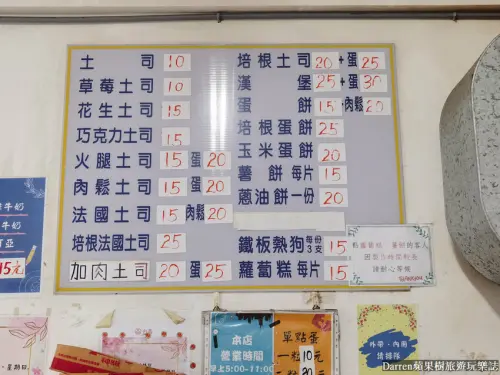 土司 10
草莓土司 10
花生土司 15
巧克力土司 15
火腿土司 15 蛋 20
肉鬆土司 15 蛋 20
法國土司 15 肉鬆 20
培根法國土司 25
加肉土司 20 蛋 25
培根土司 20 +蛋 25
漢堡 25 +蛋 30
蛋餅 15 +肉鬆 20
培根蛋餅 25
玉米蛋餅 20
薯餅每片 15
蔥油餅一份 20
鐵板熱狗每份3支 15
蘿蔔糕每片 15
牛奶
15元
點蘿蔔糕
請耐心等候
本店
營業時間
早上5:00-11:00
單點蛋
一粒10元
20
外帶、內用
請排隊
星期日
Darren蘋果樹旅遊玩樂誌